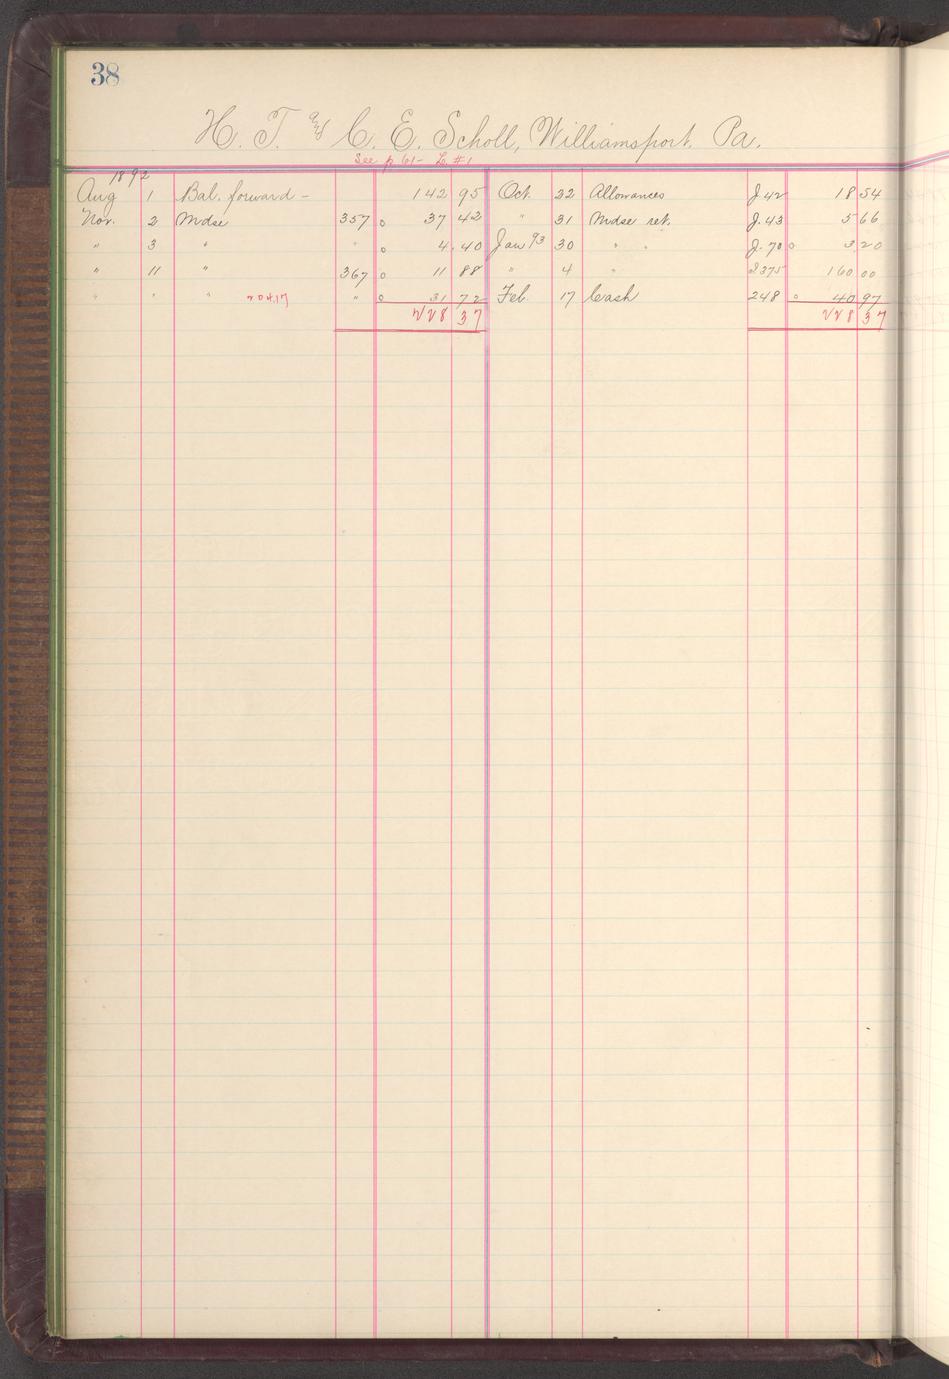 38
H. T. and C. E. Scholl, Williamsport. Pa.
See p 61- L #1
1892
Aug 1 Bal. forward - 142 95 Oct. 22 Allowances J 42 18 54
Nov. 2 Mdse 357 o 37 42 " 31 Mdse ret. J. 43 5 66
" 3 " " o 4.40 Jan 93 30 " " J. 70 o 3 20
" 11 " 367 o 11 88 " 4 " 2375 160 00
" " " " o 31 72 Feb. 17 Cash 248 o 40 97
228 37 228 37